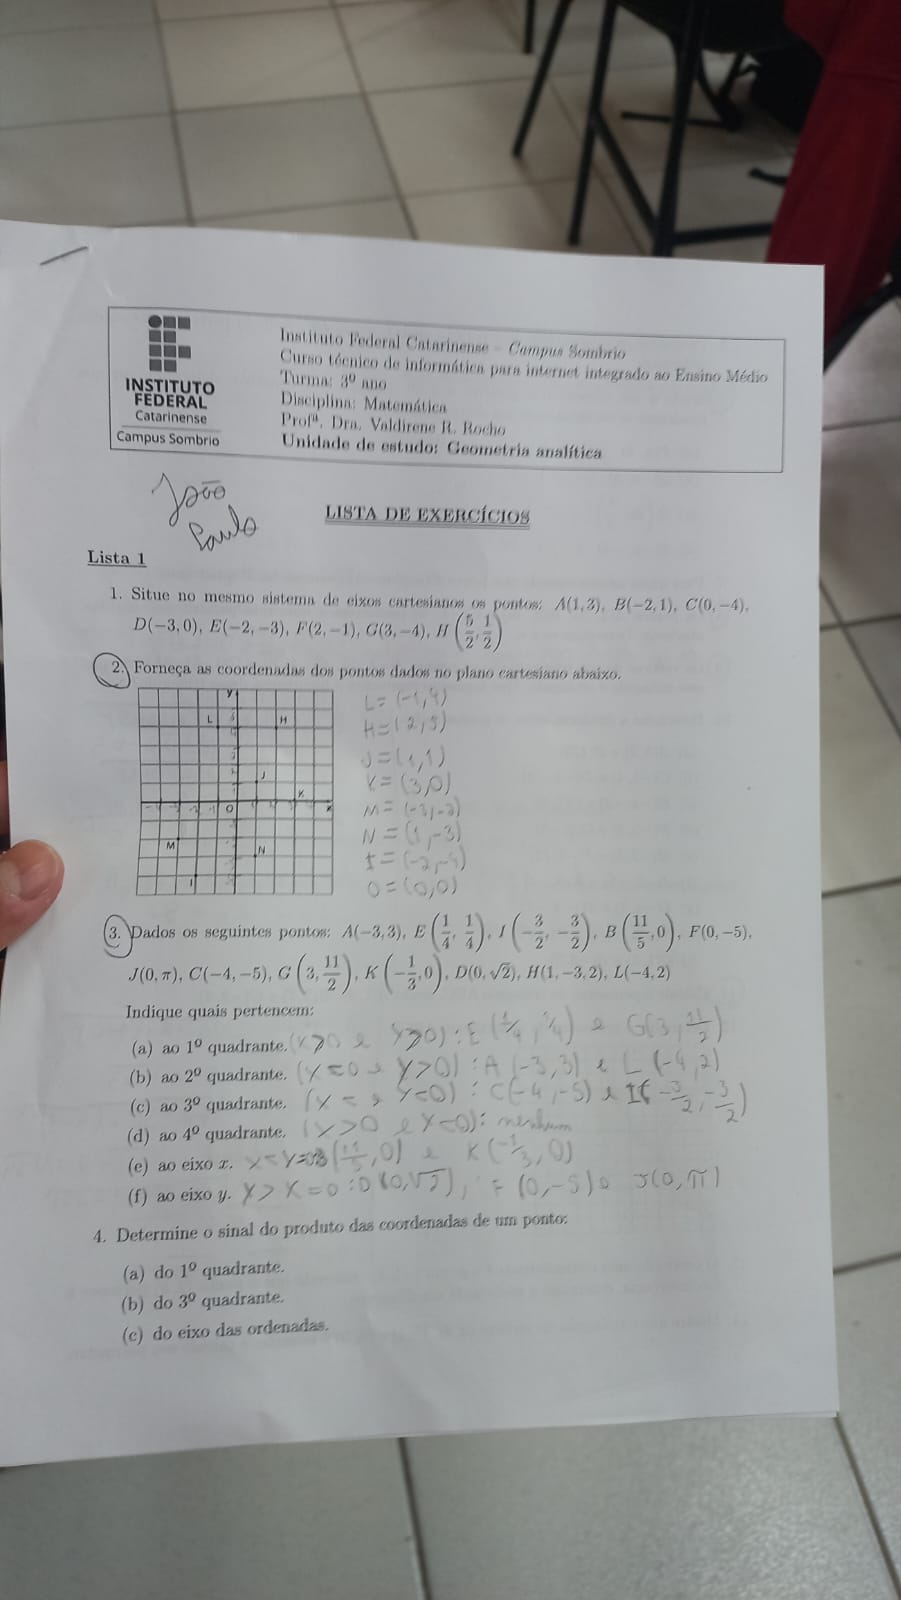 INSTITUTO
FEDERAL
Catarinense
Campus Sombrio
Instituto Federal Catarinense - Campus Sombrio
Curso técnico de informática para internet integrado ao Ensino Médio
Turma: 3º ano
Disciplina: Matemática
Profª. Dra. Valdirene R. Rocho
Unidade de estudo: Geometria analítica
João
Paulo
LISTA DE EXERCÍCIOS
Lista 1
1. Situe no mesmo sistema de eixos cartesianos os pontos: A(1,3), B(−2,1), C(0,−4),
D(−3,0), E(−2,−3), F(2,−1), G(3,−4), H(5/2, 1/2)
2. Forneça as coordenadas dos pontos dados no plano cartesiano abaixo.
y
L H
J
K
0 x
M N
I
L = (-1,4)
H = (2,5)
J = (1,1)
K = (3,0)
M = (-3,-2)
N = (1,-3)
I = (-2,-4)
O = (0,0)
3. Dados os seguintes pontos: A(−3,3), E(1/4, 1/4), I(−3/2, −3/2), B(11/5, 0), F(0,−5),
J(0,π), C(−4,−5), G(3, 11/2), K(−1/3, 0), D(0,√2), H(1,−3,2), L(−4,2)
Indique quais pertencem:
(a) ao 1º quadrante. (x>0 e y>0): E(1/4, 1/4) e G(3, 11/2)
(b) ao 2º quadrante. (x=0 e y>0): A(-3,3) e L(-4,2)
(c) ao 3º quadrante. (x= e y=0): C(-4,-5) e I(-3/2, -3/2)
(d) ao 4º quadrante. (x>0 e y=0): nenhum
(e) ao eixo x. (11/5, 0) e K(-1/3, 0)
(f) ao eixo y. x=0: D(0,√2), F=(0,-5) e J(0,π)
4. Determine o sinal do produto das coordenadas de um ponto:
(a) do 1º quadrante.
(b) do 3º quadrante.
(c) do eixo das ordenadas.